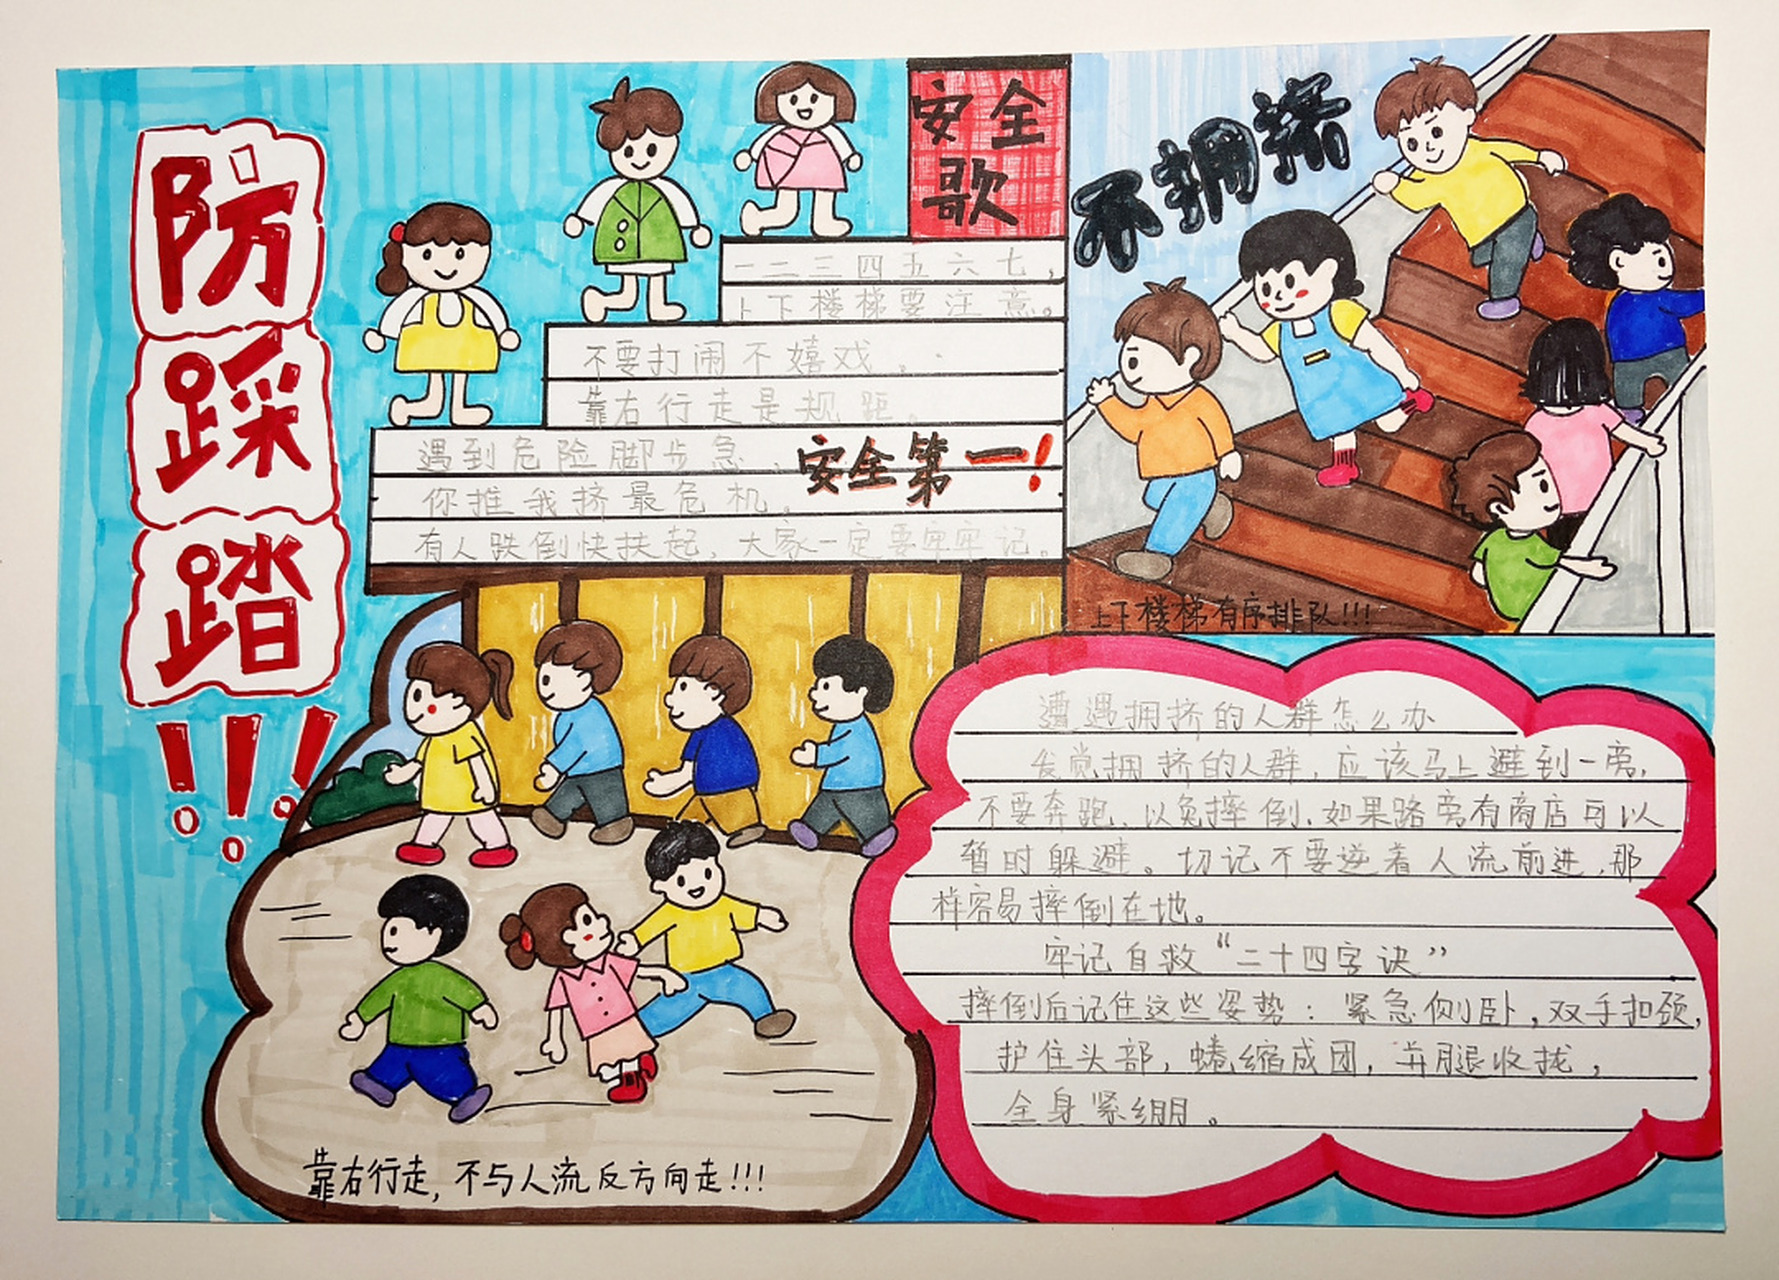 防踩踏!!!
安全歌
一二三四五六七,
上下楼梯要注意。
不要打闹不嬉戏。
靠右行走是规距。
遇到危险脚步急,
你推我挤最危机。
有人跌倒快扶起,大家一定要牢牢记。
安全第一!
不拥挤
上下楼梯有序排队!!!
靠右行走,不与人流反方向走!!!
遭遇拥挤的人群怎么办
发觉拥挤的人群,应该马上避到一旁,
不要奔跑,以免摔倒,如果路旁有商店可以
暂时躲避。切记不要逆着人流前进,那
样容易摔倒在地。
牢记自救“二十四字诀”
摔倒后记住这些姿势:紧急侧卧,双手扣颈,
护住头部,蜷缩成团,并腿收拢,
全身紧绷。